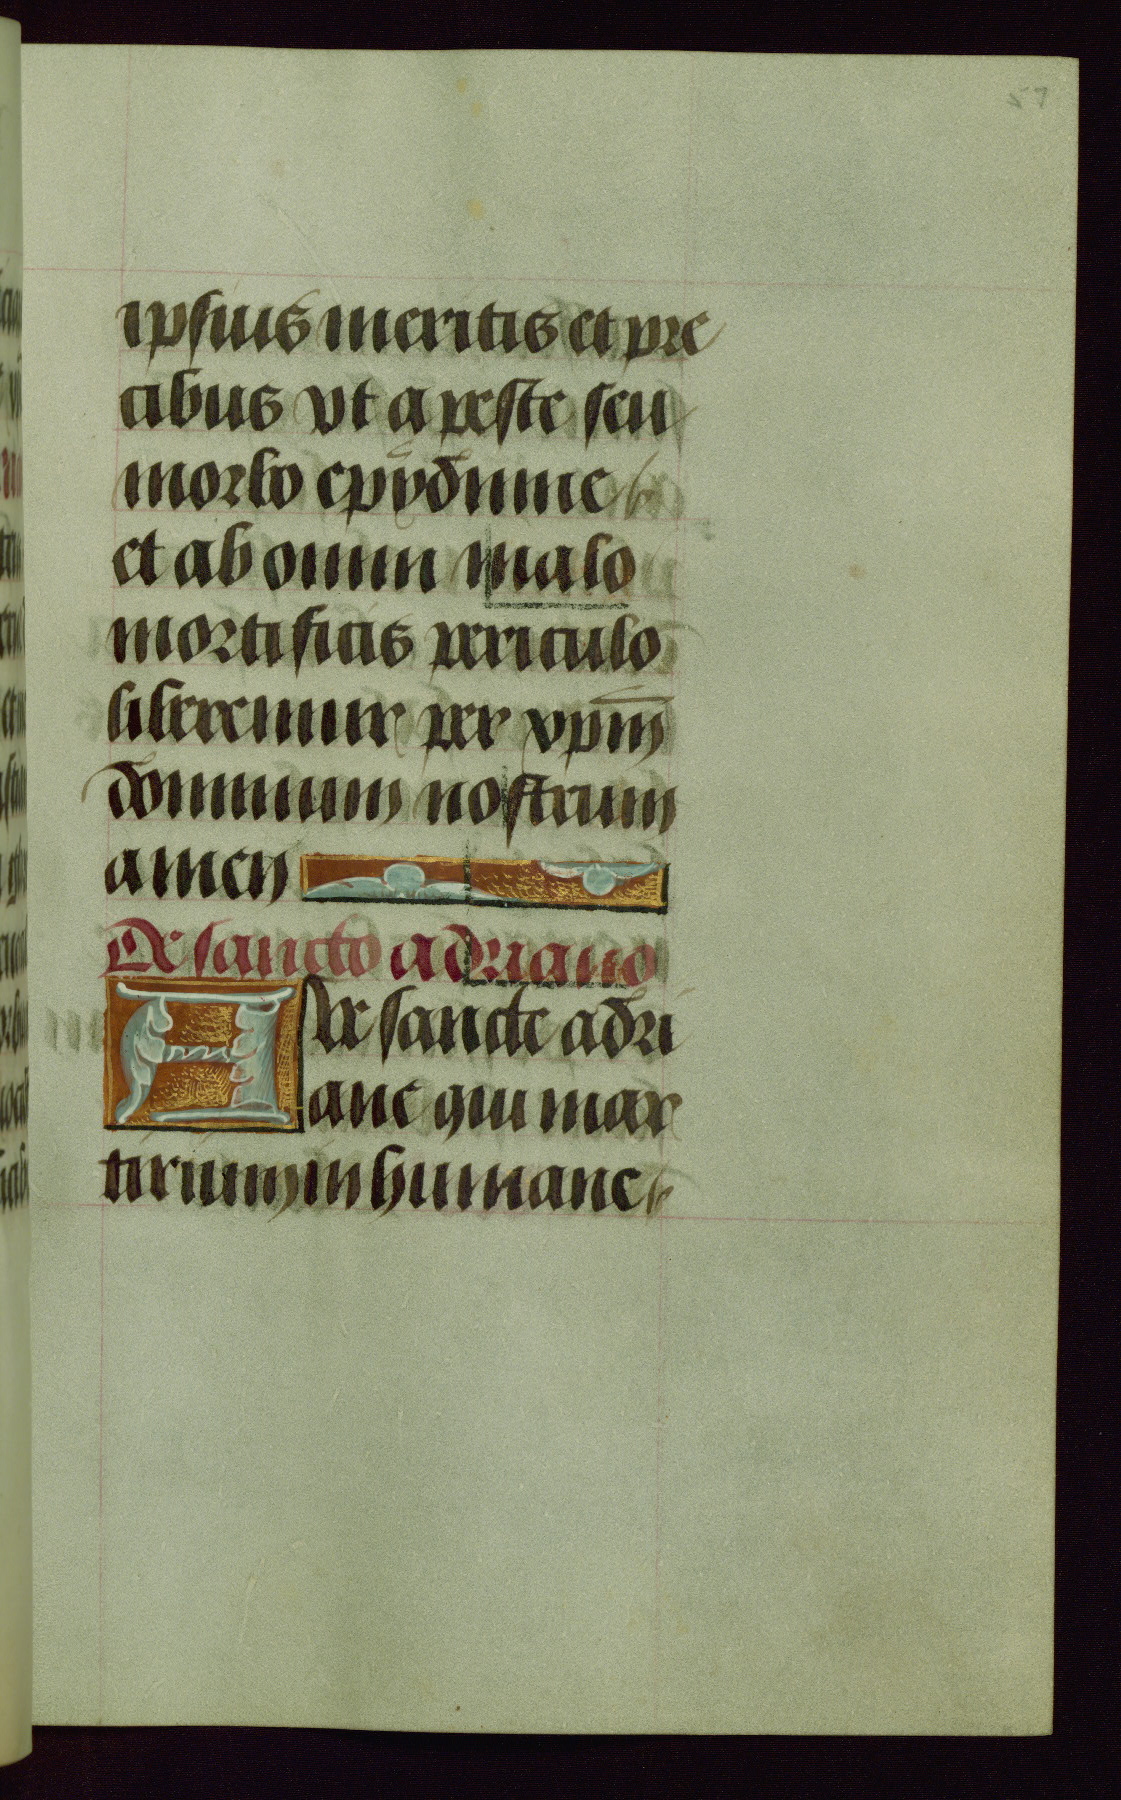 57
ipsius meritis et pre
cibus vt a peste seu
morbo epydimie
et ab omni malo
mortificis periculo
liberemur per xpm̄
dominum nostrum
amen
De sancto adriano
Ave sancte adri
ane qui mar
tirium inhumane